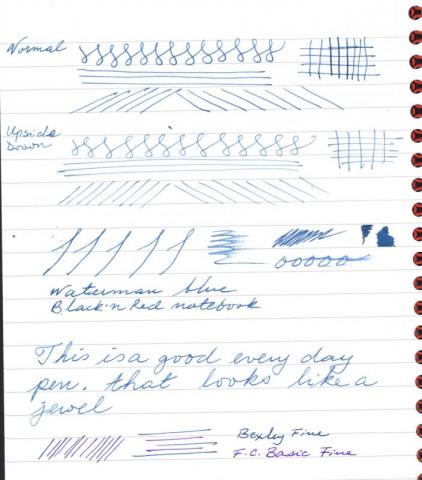 Normal
Upside
Down
Waterman blue
Black'n Red notebook
This is a good every day
pen. that looks like a
jewel
Bexley Fine
F.C. Basic Fine